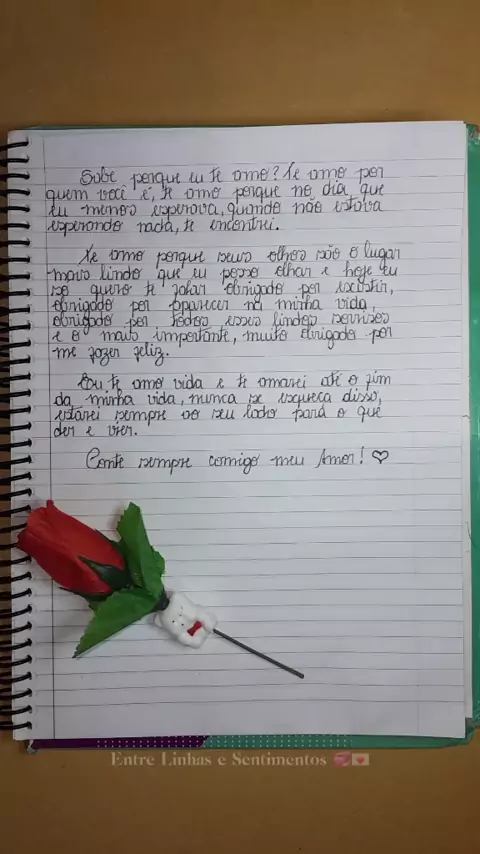 Sabe porque eu te amo? Te amo por
quem você é, te amo porque no dia que
eu menos esperava, quando não estava
esperando nada, te encontrei.
Te amo porque seus olhos são o lugar
mais lindo que eu posso olhar e hoje eu
só quero te falar obrigado por existir,
obrigado por aparecer na minha vida,
obrigado por todos esses lindos sorrisos
e o mais importante, muito obrigado por
me fazer feliz.
Eu te amo vida e te amarei até o fim
da minha vida, nunca se esqueça disso,
estarei sempre ao seu lado para o que
der e vier.
Conte sempre comigo meu Amor! ♡
Entre Linhas e Sentimentos 💞💌